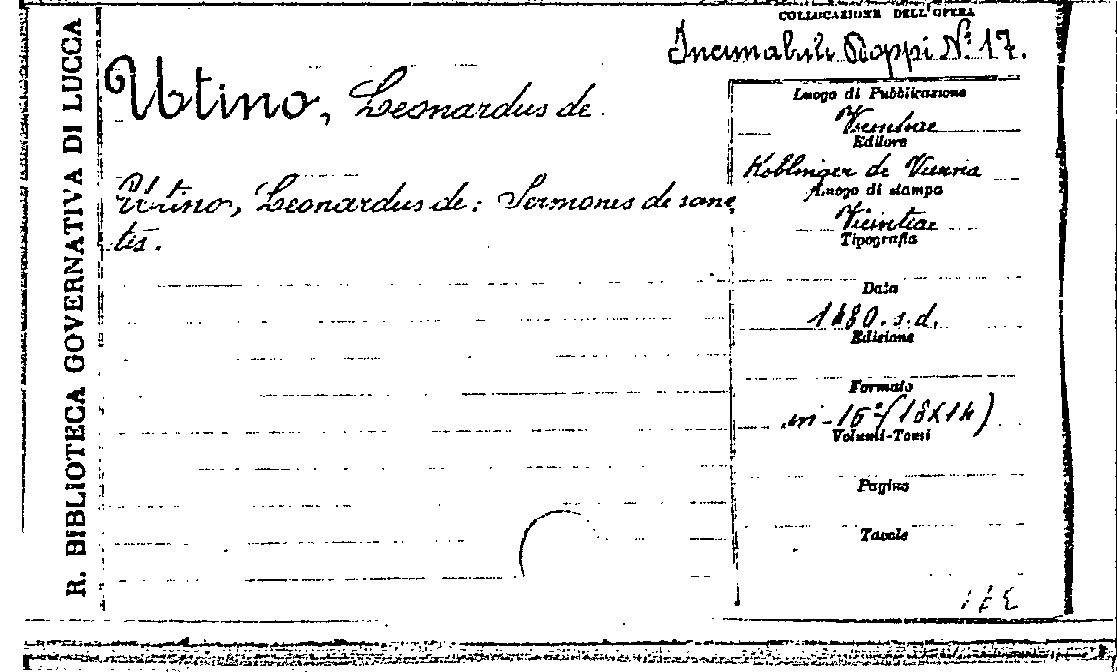 R. BIBLIOTECA GOVERNATIVA DI LUCCA
COLLOCAZIONE DELL'OPERA
Incunabuli Doppi N.º 17.
Utino, Leonardus de
Utino, Leonardus de: Sermones de sanc
tis.
Luogo di Pubblicazione
Editore
Koblinger de Vienna
Luogo di stampa
Vicintiae
Tipografia
Data
1480. s.d.
Edizione
Formato
in-16º (18X14)
Volumi-Tomi
Pagine
Tavole